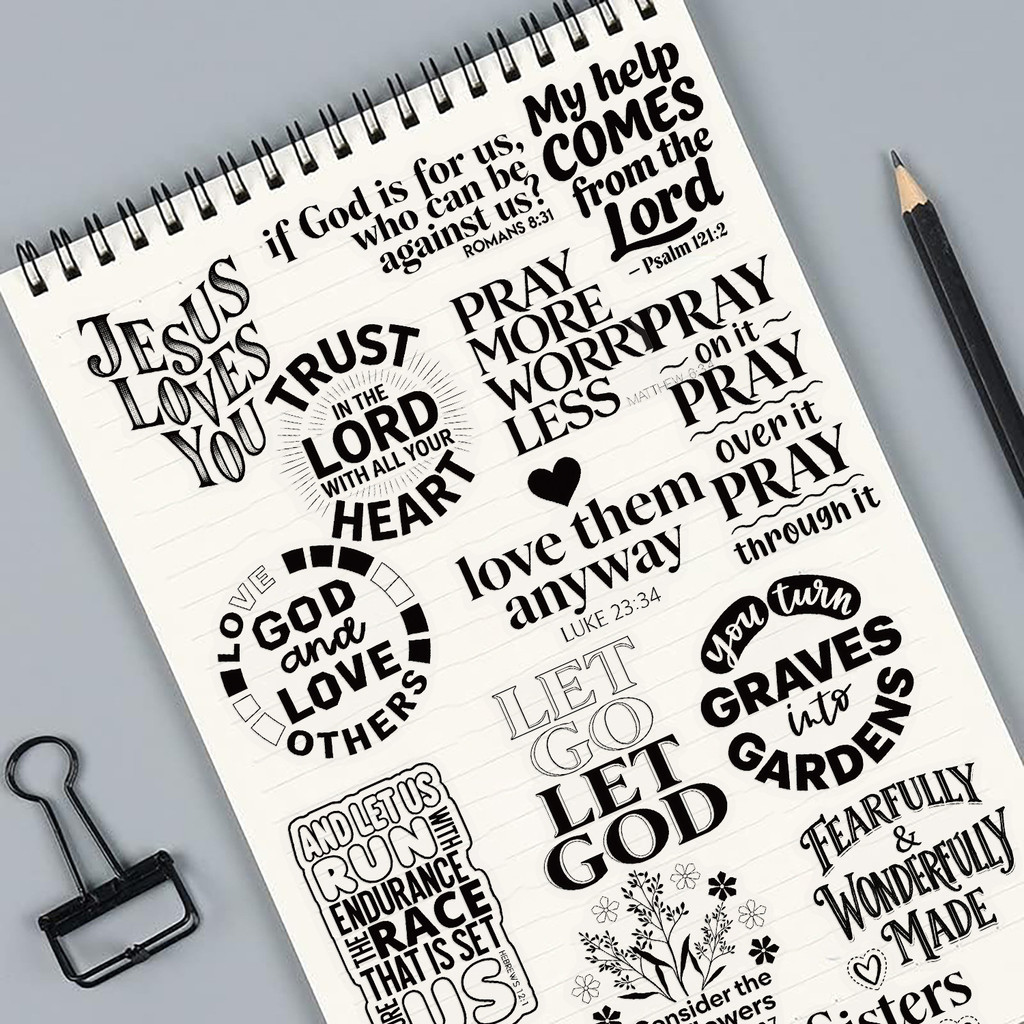 My help
COMES
from the
Lord
– Psalm 121:2
if God is for us,
who can be
against us?
ROMANS 8:31
JESUS
LOVES
YOU
TRUST
IN THE
LORD
WITH ALL YOUR
HEART
PRAY
MORE
WORRY
LESS
MATTHEW 6:34
PRAY
on it
PRAY
over it
PRAY
through it
love them
anyway
LUKE 23:34
LOVE
GOD
and
LOVE
OTHERS
You turn
GRAVES
into
GARDENS
LET
GO
LET
GOD
AND LET US
RUN WITH
ENDURANCE
THE RACE
THAT IS SET
US
HEBREWS 12:1
FEARFULLY
&
WONDERFULLY
MADE
Consider the
Sisters